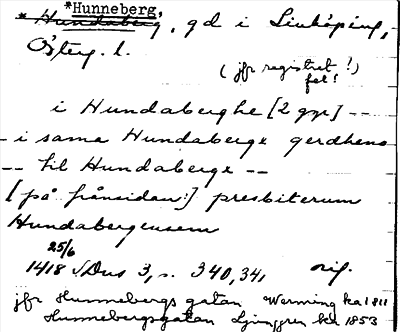 *Hunneberg,
* Hundaberg, gd i Linköping,
Österg. l.
(jfr registret!)
fel!
i Hundaberghe [2 ggr] --
- i sama Hundaberge gerdhens
-- til Hundaberge --
[på frånsidan:] presbiterum
Hundabergensem
25/6
1418 SDns 3, s. 340, 341 orig.
jfr Hunnebergs gatan Werming ka 1811
Hunnebergsgatan Ljunggren ka 1853